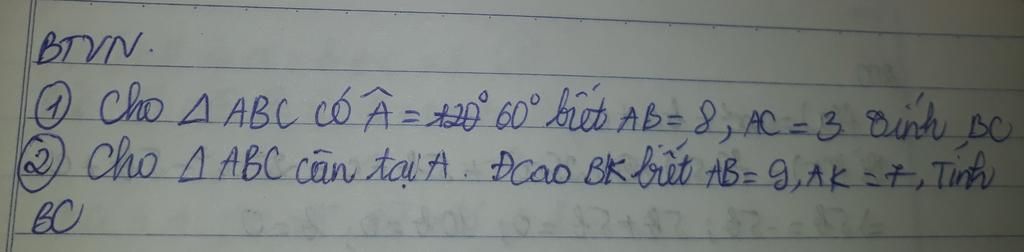 BTVN.
① Cho △ ABC có Â = 60° biết AB = 8, AC = 3 Tính BC
② Cho △ ABC cân tại A. Đcao BK biết AB = 9, AK = 7, Tính
BC